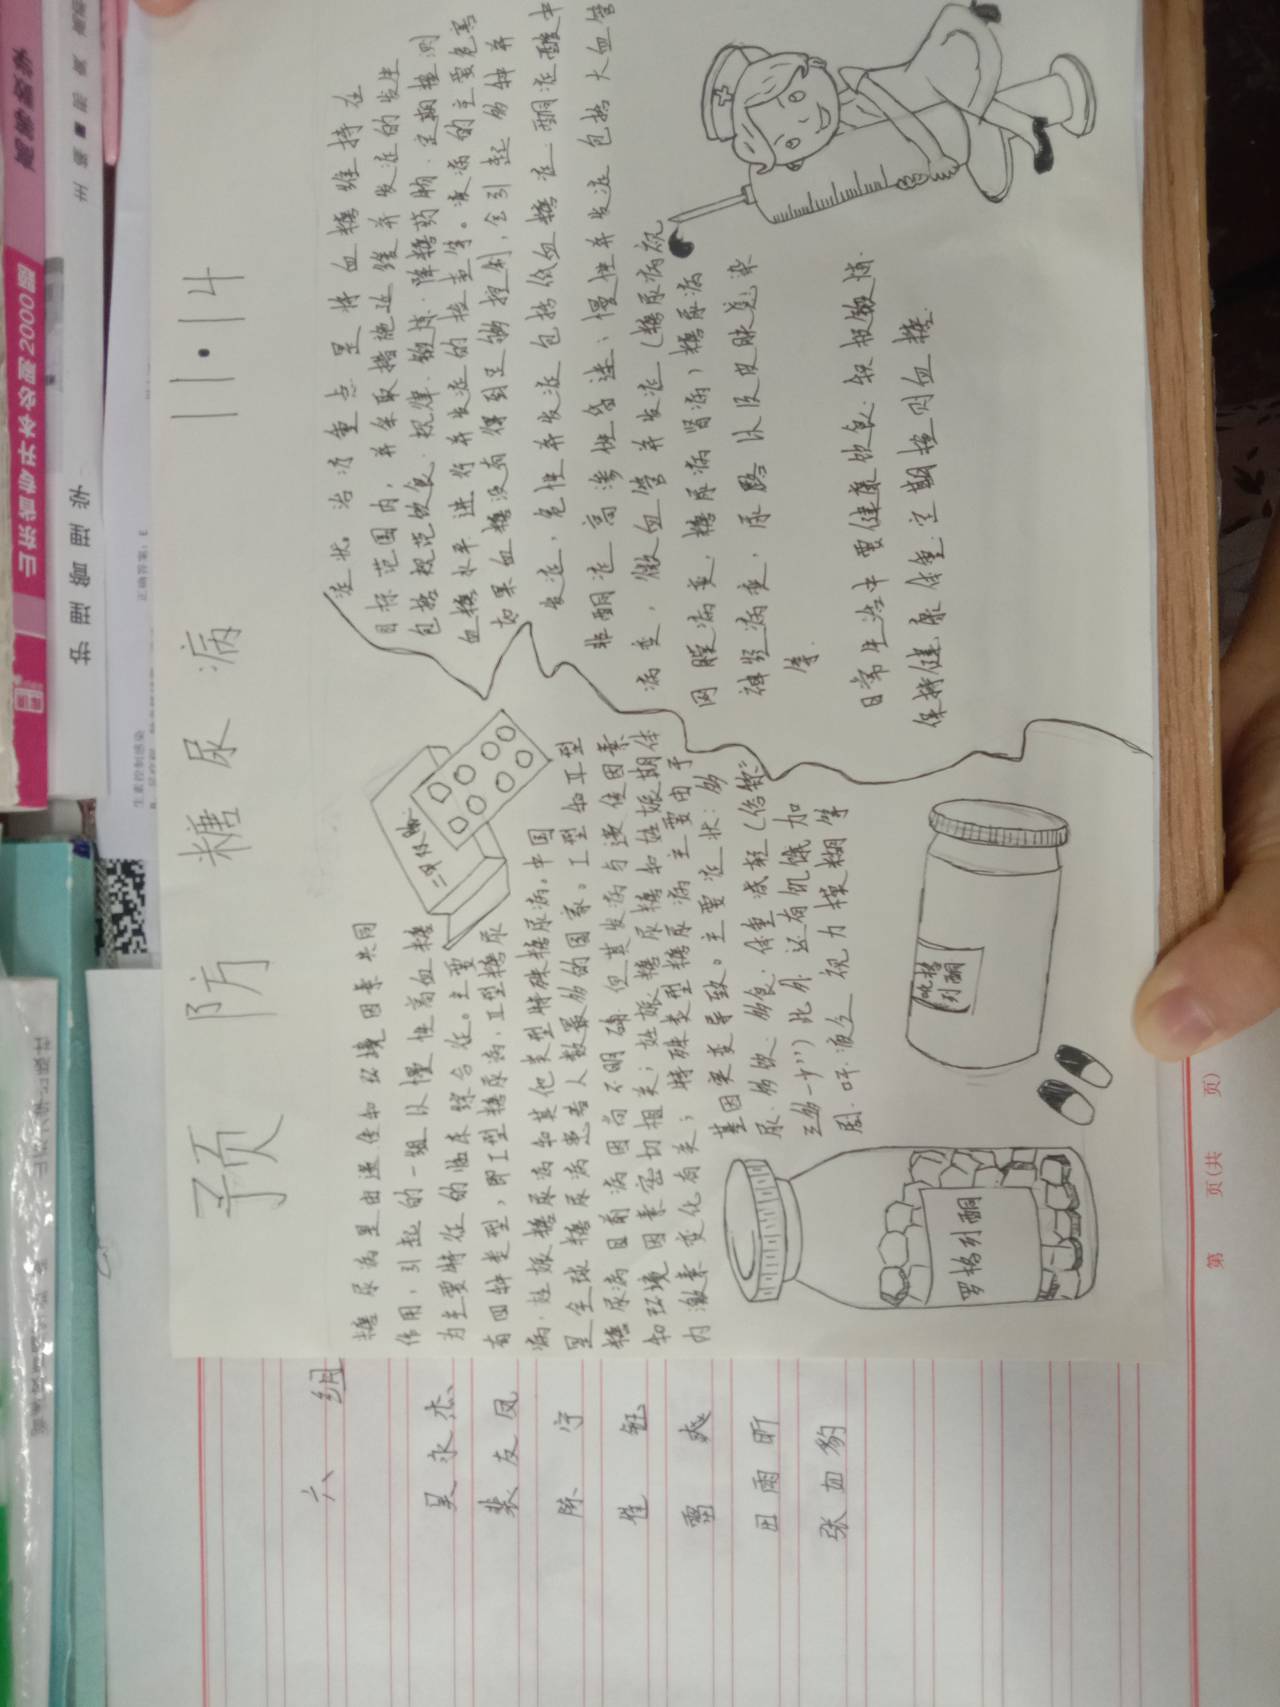 预防糖尿病 11·14
糖尿病是由遗传和环境因素共同
作用，引起的一组以慢性高血糖
为主要特征的临床综合征。主要
有四种类型，即I型糖尿病、II型糖尿
病、妊娠糖尿病和其他类型特殊糖尿病，中国
是全球糖尿病患者人数最多的国家。I型和II型
糖尿病目前病因尚不明确，但其发病与遗传因素
和环境因素密切相关；妊娠糖尿糖和妊娠期体
内激素变化有关；特殊类型糖尿病主要由于
基因突变导致。主要症状：多
尿、多饮、多食、体重减轻（俗称“
三多一少”）此外 还有饥饿加
剧、呼 视力模糊等
症状。治疗重点是将血糖维持在
目标范围内，并采取措施延缓并发症的发生
包括规范饮食、规律锻炼、降糖药物、定期检测
血糖水平 进行并发症的检查等。该病的主要危害
如果血糖没有得到足够控制，会引起多种并
发症，急性并发症包括低血糖症 酮症酸中
非酮症高渗性昏迷；慢性并发症包括大血管
病变，微血管并发症（糖尿病视
网膜病变、糖尿病肾病）糖尿病
神经病变，尿路以及皮肤感染
等.
日常生活中要健康饮食、积极锻炼
保持健康体重、定期检测血糖.
二甲双胍
吡格列酮
罗格列酮
六组
吴永杰
裴友凤
陈宁
崔钰
雷爽
田雨昕
张如豹
山东省专开本必刷2000题
护理障理学
生素控制感染
正确答案：3
第 页（共 页）